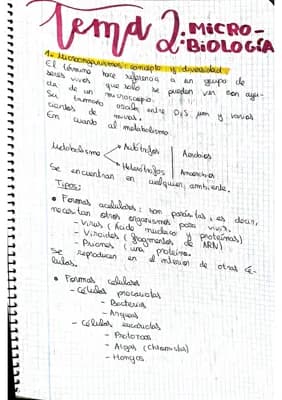 Tema 2: MICRO-
BIOLOGÍA
1.- Microorganismos: concepto y diversidad
El término hace referencia a un grupo de
seres vivos que solo se pueden ver con ayu-
da de un microscopio.
Su tamaño oscila entre 0,5 µm y varias
cientos de micras.
En cuanto al metabolismo
Metabolismo
Autótrofos
Heterótrofos
Aerobios
Anaerobios
Se encuentran en cualquier ambiente.
Tipos:
• Formas acelulares: son parásitas, es decir,
necesitan otros organismos para vivir.
- Virus (Ácido nucleico y proteínas)
- Viroides (fragmentos de ARN)
- Priones (una proteína).
Se reproducen en el interior de otras cé-
lulas.
• Formas celulares
- Células procariotas
- Bacterias
- Arqueas
- Células eucariotas
- Protozoos
- Algas (Chromista)
- Hongos